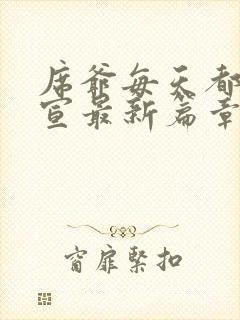 席爷每天都
宣最新篇章
窗扉紧扣